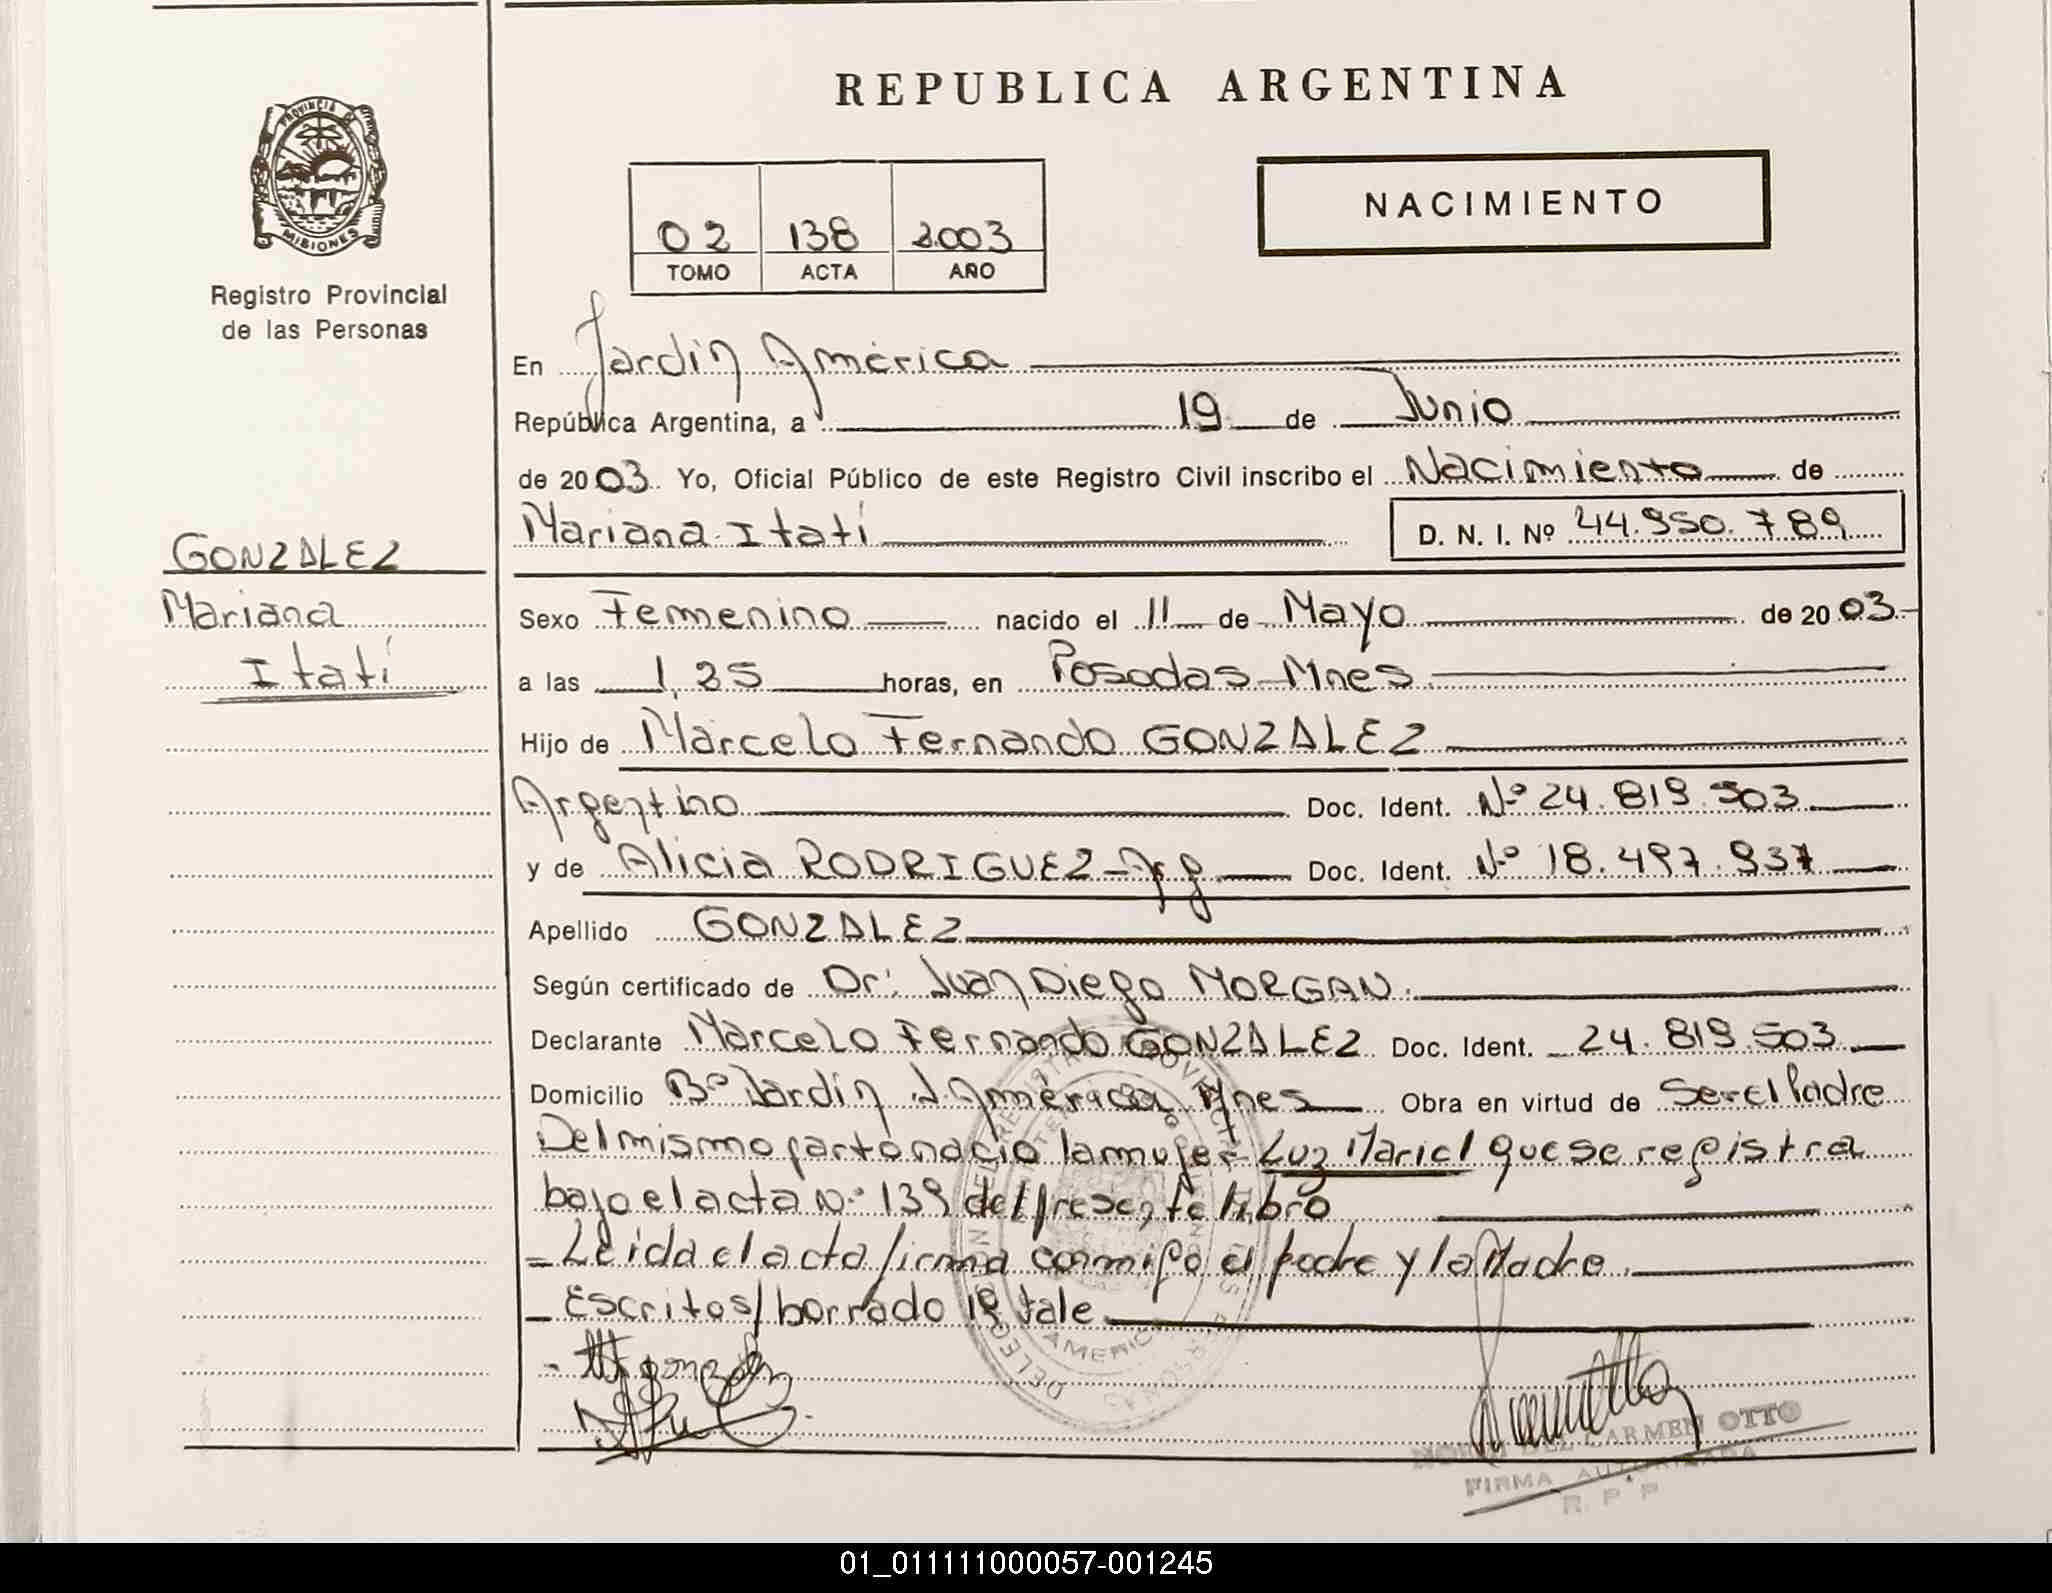 REPUBLICA ARGENTINA
PROVINCIA
MISIONES
Registro Provincial
de las Personas
02 138 2003
TOMO ACTA AÑO
NACIMIENTO
En Jardín América
República Argentina, a 19 de Junio
de 2003 Yo, Oficial Público de este Registro Civil inscribo el Nacimiento de
Mariana Itatí D. N. I. Nº 44.950.789
GONZALEZ
Mariana
Itatí
Sexo Femenino nacido el 11 de Mayo de 2003
a las 1,25 horas, en Posadas-Mnes
Hijo de Marcelo Fernando GONZALEZ
Argentino Doc. Ident. Nº 24.819.503
y de Alicia RODRIGUEZ-Arg. Doc. Ident. Nº 18.497.937
Apellido GONZALEZ
Según certificado de Dr: Juan Diego MORGAN.
Declarante Marcelo Fernando GONZALEZ Doc. Ident. 24.819.503
Domicilio Bº Jardín J. América, Mnes Obra en virtud de Ser el Padre
Del mismo parto nació la mujer Luz Mariel que se registra
bajo el acta Nº 139 del presente libro
- Leida el acta firma conmigo el padre y la Madre.
- Escritos/borrado 19 Vale
DEL CARMEN OTTO
FIRMA AUTORIZADA
R. P. P
01_011111000057-001245